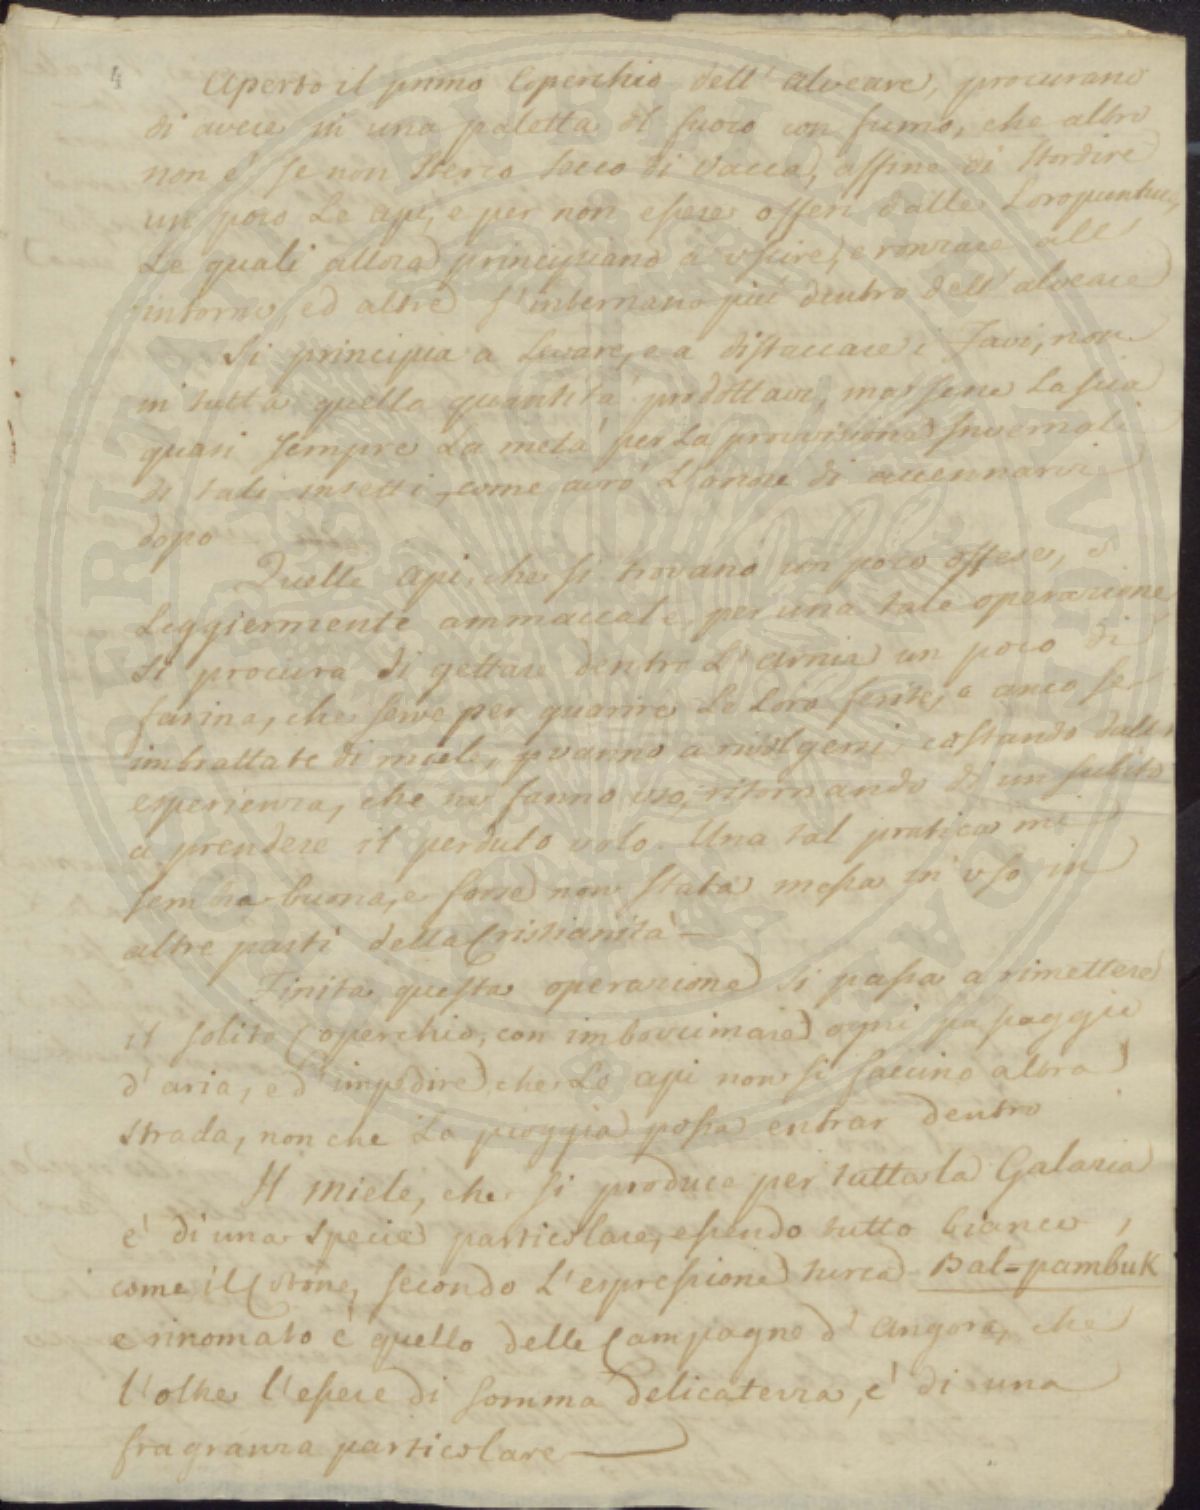 4
Aperto il primo Coperchio dell' alveare, procurano
di avere in una paletta del fuoco con fumo, che altro
non è se non sterco secco di Vacca, affine di stordire
un poco Le api, e per non essere offesi dalle Loro punture,
Le quali allora principiano a uscire, e ronzare all'
intorno, ed altre s'internano più dentro dell' alveare
Si principia a Levare, e a distaccare i Favi, non
in tutta quella quantità prodottavi, ma sene Lascia
quasi sempre La metà per La provvisione Invernale
di tali insetti, come avrò L'onore di accennarvi
dopo
Quelle api, che si trovano un poco offese, e
Leggiermente ammaccate, per una tale operazione,
si procura di gettare dentro L'arnia un poco di
farina, che serve per guarire Le Loro ferite, e anco se
imbrattate di miele, vanno a rivolgersi, costando dalla
esperienza, che ne fanno uso, ritornando di un subito
a prendere il perduto volo. Una tal pratica mi
sembra buona, e forse non stata messa in uso in
altre parti della Cristianità —
Finita questa operazione si passa a rimettere
il solito Coperchio, con imbovimare ogni passaggio
d'aria, ed impedire che Le api non si faccino altra
strada, non che La pioggia possa entrar dentro
Il Miele, che si produce per tutta la Galazia
è di una specie particolare, essendo tutto bianco,
come il Cotone, secondo L'espressione turca Bal=pambuk
e rinomato è quello delle Campagne d'Angora, che
l'oltre l'essere di somma delicatezza, è di una
fragranza particolare —